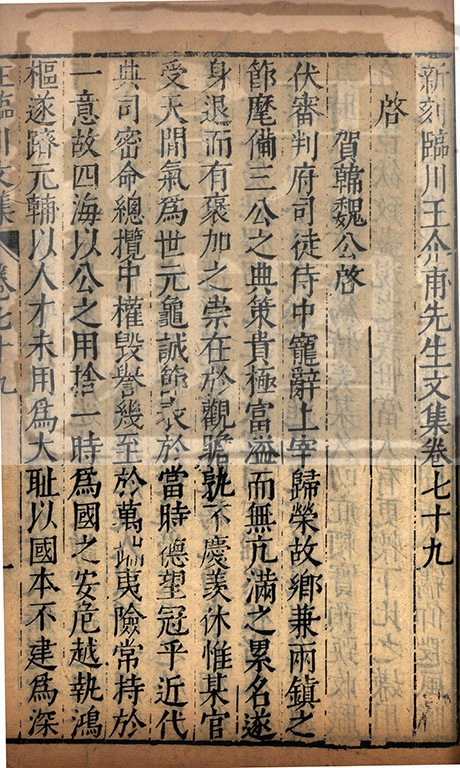 新刻臨川王介甫先生文集卷七十九
啓
賀韓魏公啓
伏審判府司徒侍中寵辭上宰歸榮故鄉兼兩鎮之
節麾備三公之典策貴極富溢而無亢滿之累名遂
身退而有褒加之崇在於觀瞻孰不慶羡休惟某官
受天閒氣爲世元龜誠節表於當時德望冠乎近代
典司密命總攬中權毀譽幾至於萬端夷險常持於
一意故四海以公之用捨一時爲國之安危越執鴻
樞遂躋元輔以人才未用爲大恥以國本不建爲深
王臨川文集 卷七十九 一